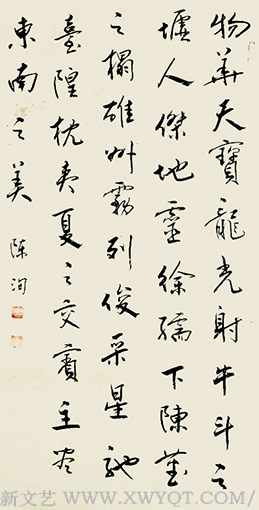 物華天寶龍光射牛斗之
墟人傑地靈徐孺下陳蕃
之榻雄州霧列俊采星馳
臺隍枕夷夏之交賓主盡
東南之美 陳洵
新文艺 WWW.XWYQT.COM/